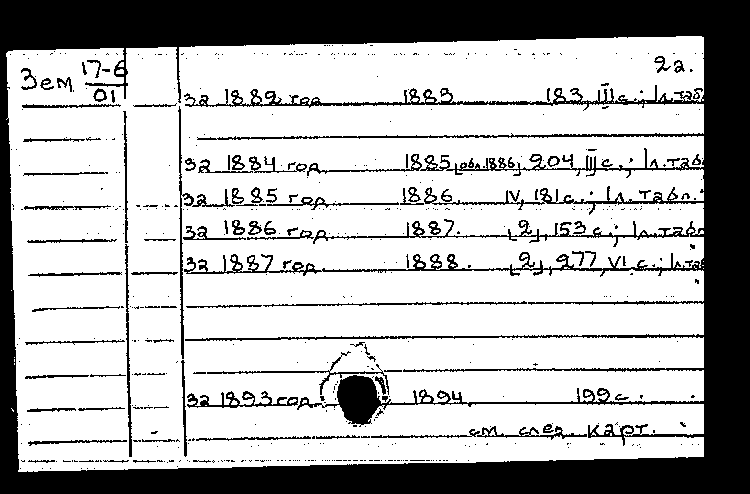 2а.
Зем 17-6
01
за 1882 год 1883 183, III с.; 1 л. табл
за 1884 год 1885 [обл. 1886], 204, II с.; 1 л. табл
за 1885 год 1886. IV, 181 с.; 1 л. табл.
за 1886 год 1887. [2], 153 с.; 1 л. табл
за 1887 год 1888. [2], 277, VI с.; 1 л. таб
за 1893 год 1894. 199 с.
см. след. карт.